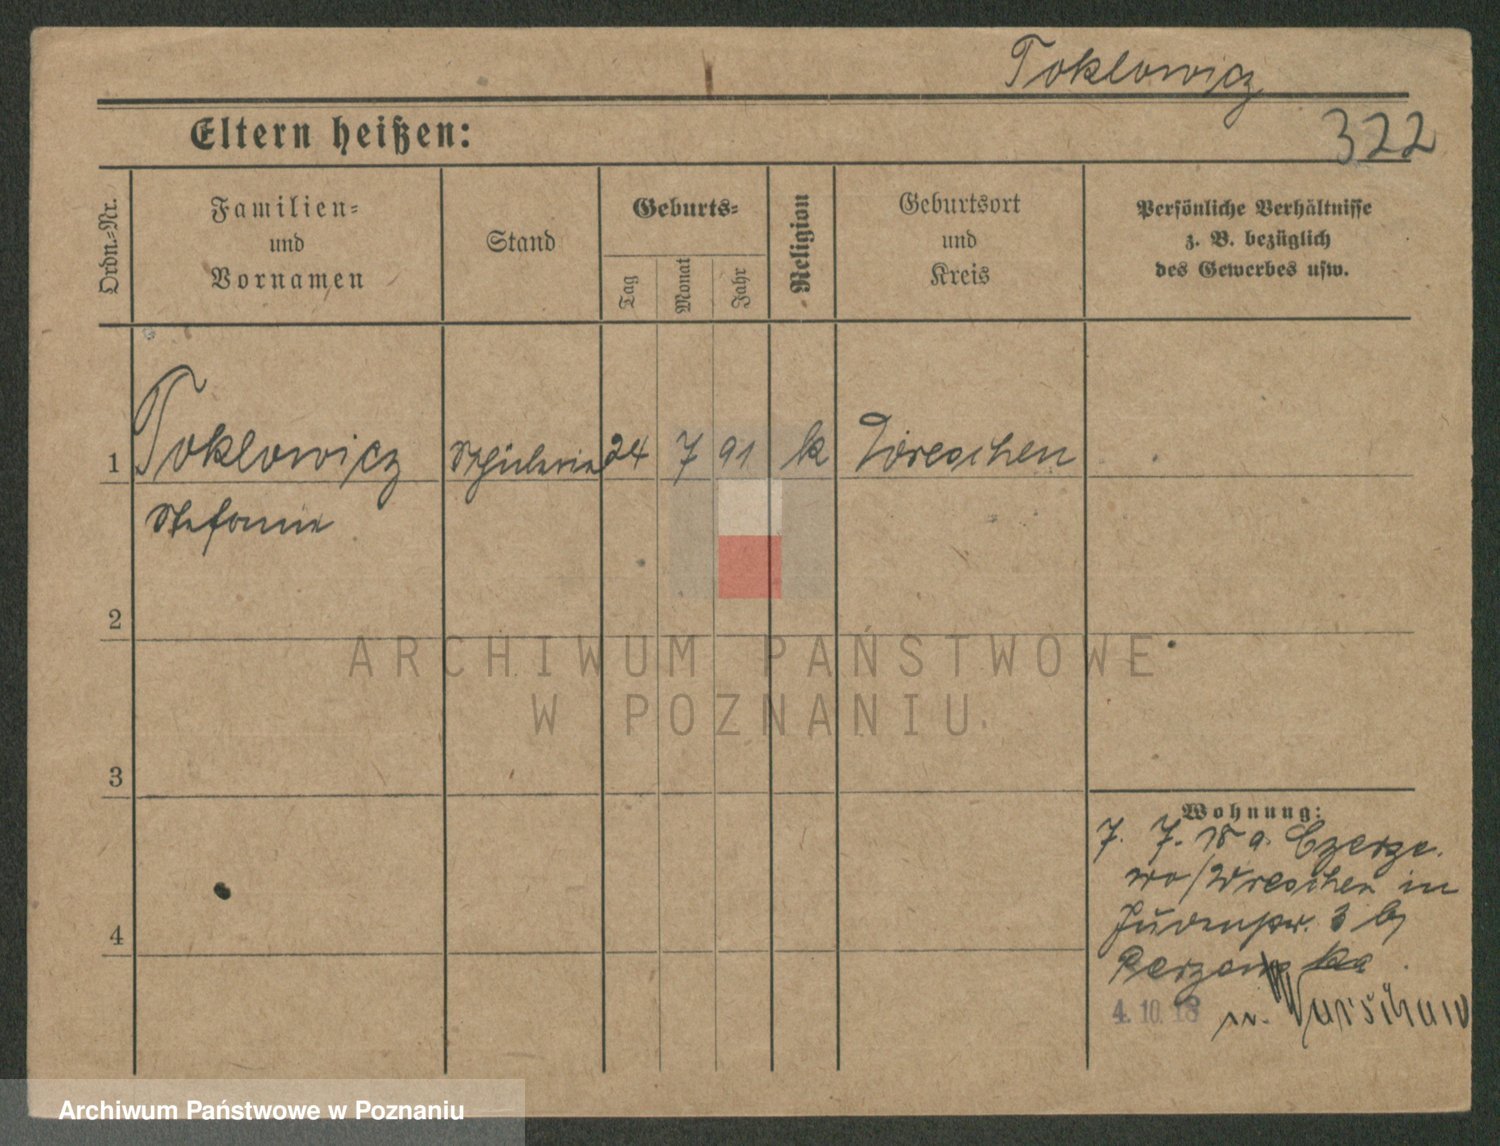 Toklowicz
322
Eltern heißen:
Ordn.-Nr.
Familien-
und
Vornamen
Stand
Geburts-
Tag
Monat
Jahr
Religion
Geburtsort
und
Kreis
Persönliche Verhältnisse
z. B. bezüglich
des Gewerbes usw.
1 Toklowicz Schülerin 24 7 91 k Wreschen
Stefanie
2
3
4
Wohnung:
7. 7. 18 a.
wo/Wreschen in
Judenstr. 3 b/
4. 10. 18 n. Warschau
ARCHIWUM PAŃSTWOWE
W POZNANIU
Archiwum Państwowe w Poznaniu